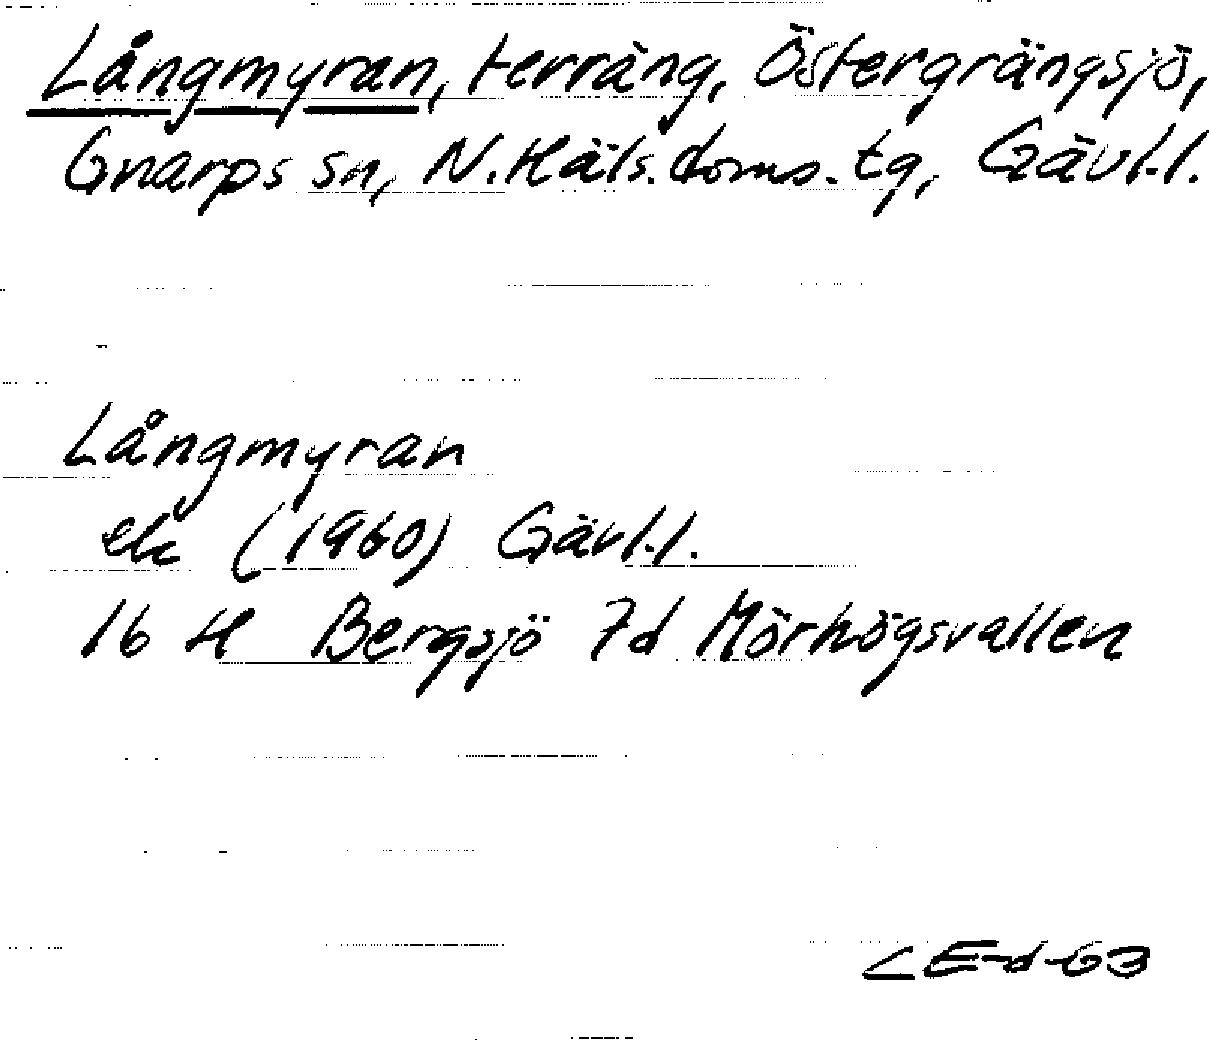 Långmyran, terräng, Östergrängsjö,
Gnarps sn, N. Häls. doms. tg, Gävl.l.
Långmyran
ek (1960) Gävl.l.
16 H Bergsjö 7d Mörhögsvallen